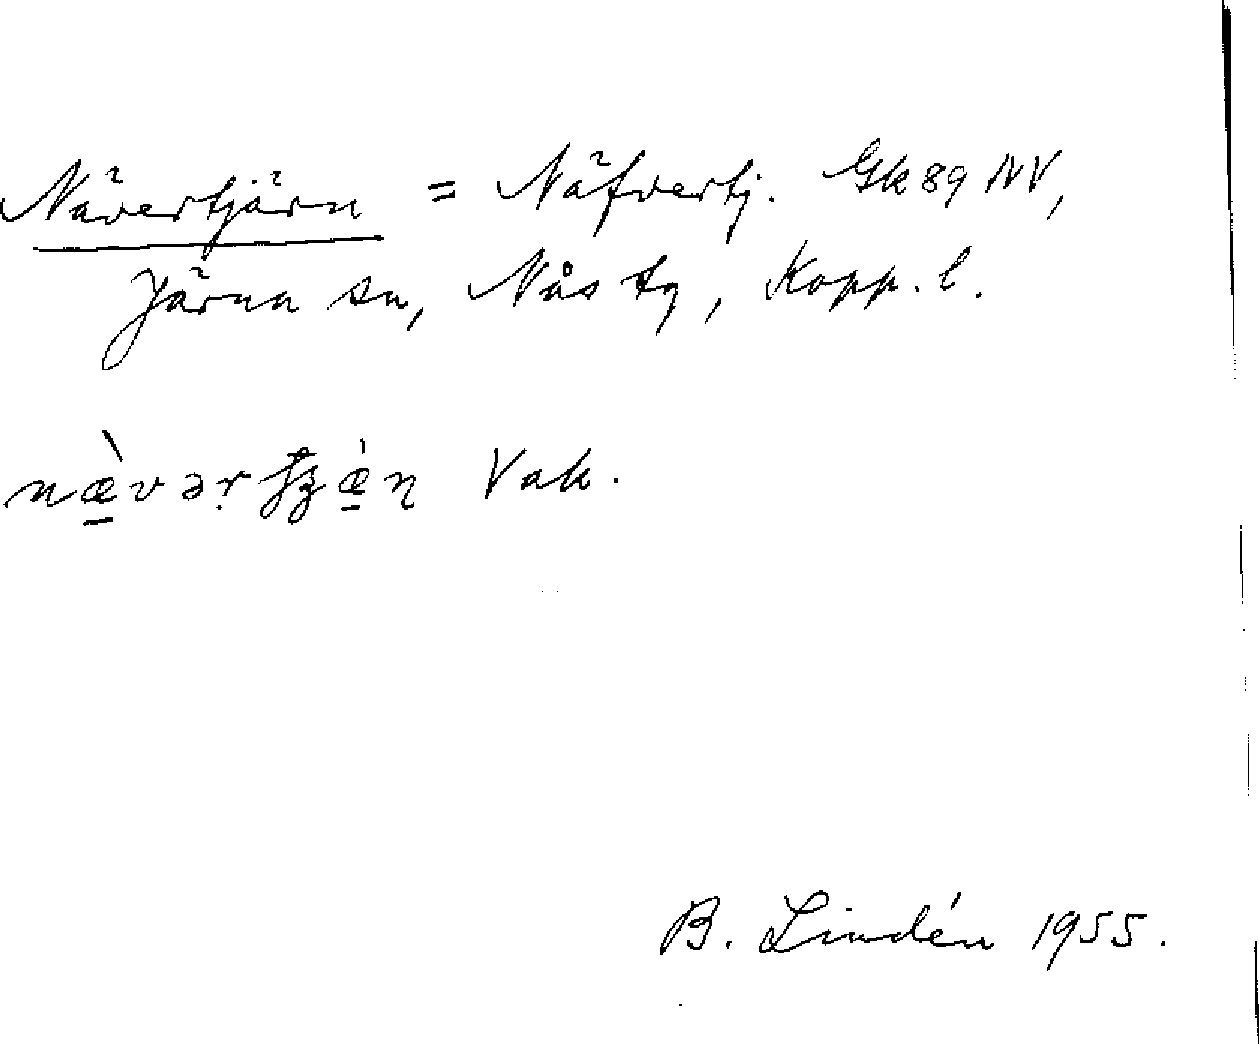 Nävertjärn = Näfvertj. Gk 89 NV,
Järna sn, Nås tg, Kopp. l.
Vak.
B. Lindén 1955.